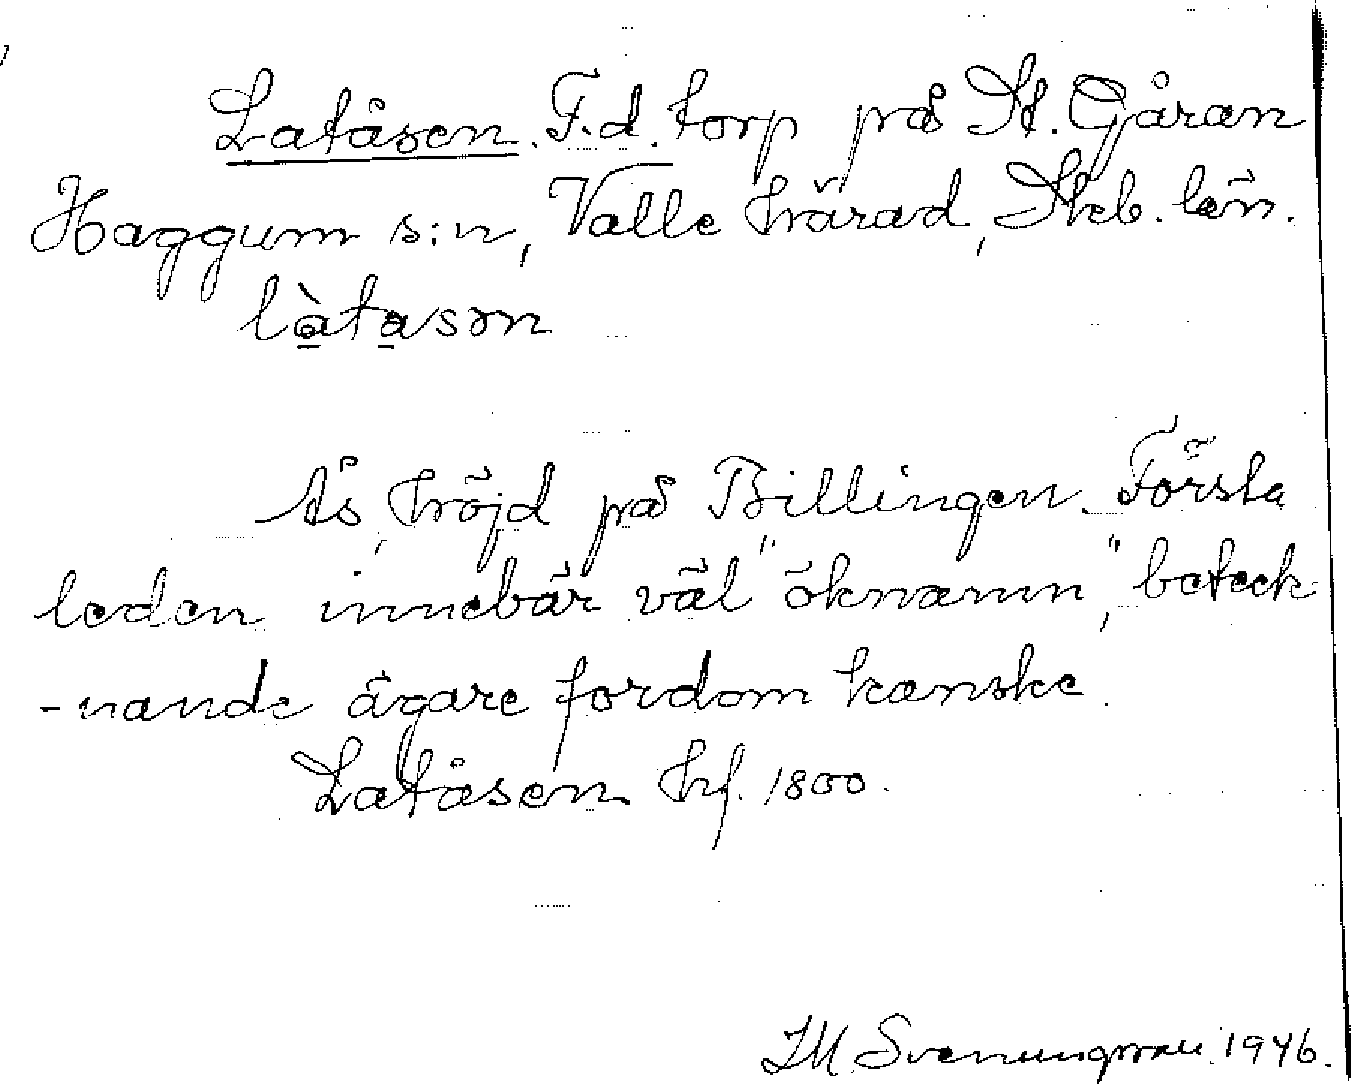 Latåsen. F.d. torp på St. Gåran
Haggum s:n, Valle härad, Skb. län.
là̱ta̱sən
Ås, höjd på Billingen. Första
leden innebär väl "öknamn", beteck-
-nande ägare fordom kanske.
Latåsen hf. 1800.
IM Svenungsson 1946.